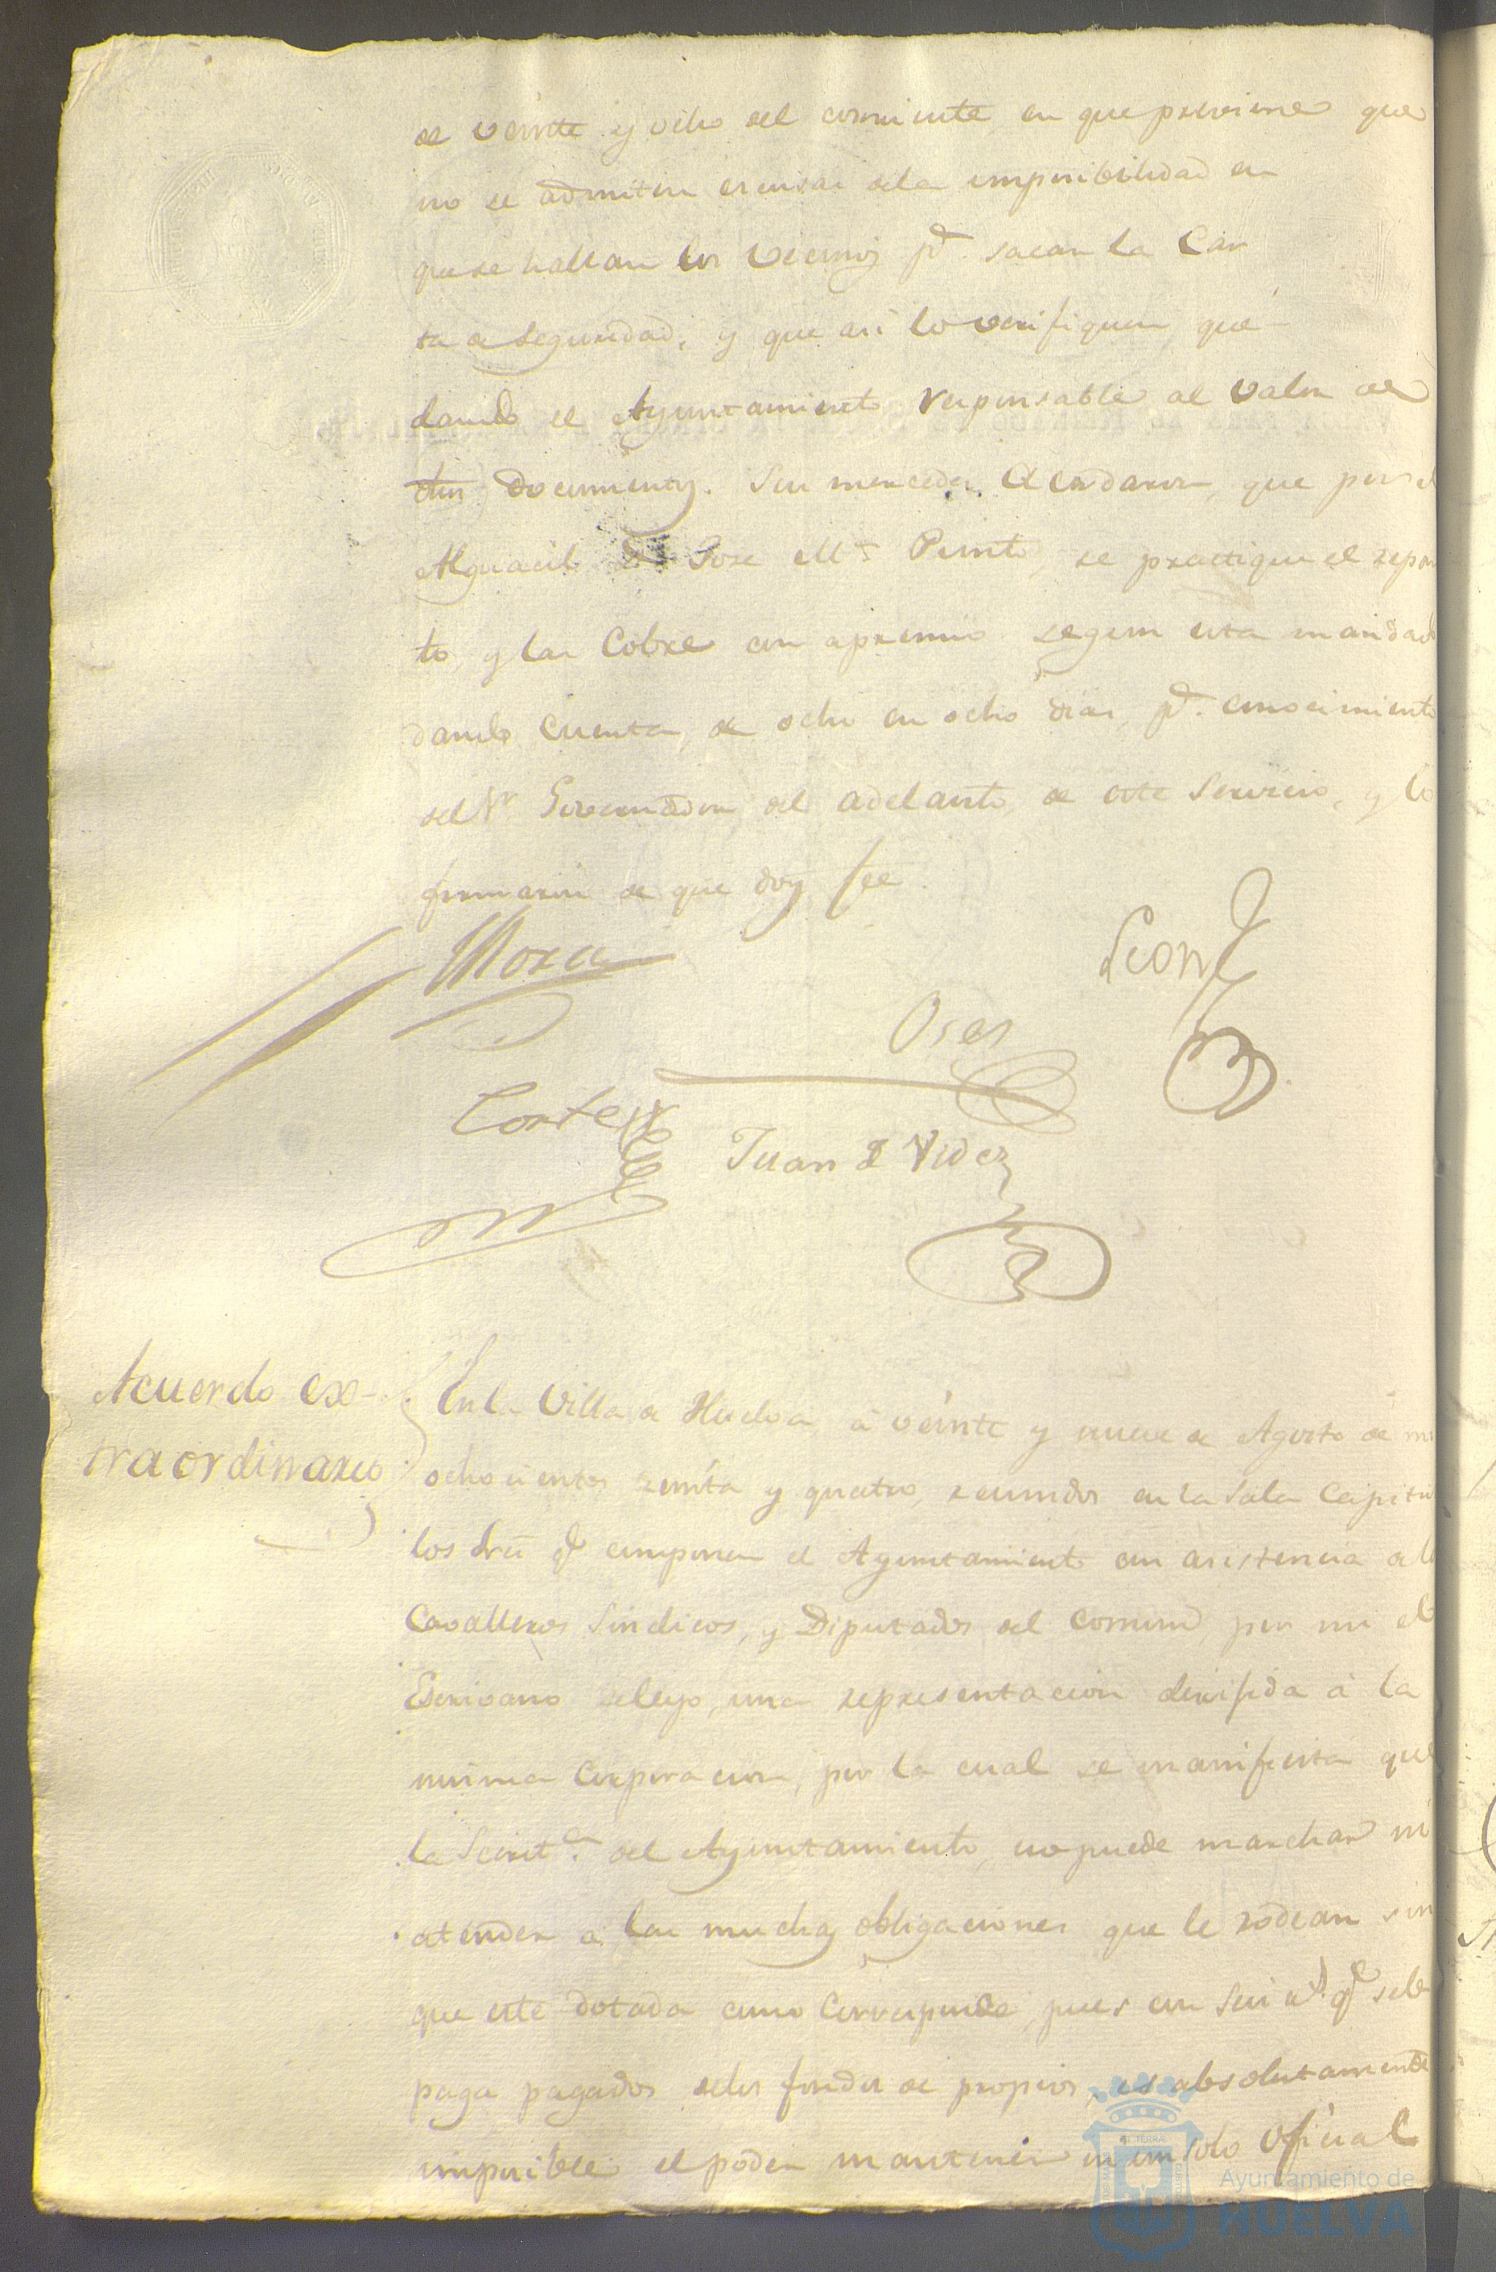 de veinte y ocho del corriente en que previene que
no se admiten escusas dela imposibilidad en
que se hallan los vecinos pª. sacar la Car
ta de Seguridad, y que asi lo verifiquen, que-
dando el Ayuntamiento responsable al valor de
dhos documentos. Sus mercedes Acordaron, que por el
Alguacil Dn Jose Mª Punto, se practique el repar
to, y las Cobre con apremio segun esta mandado
dando Cuenta, de ocho en ocho dias, pª. conocimiento
del Sr Governador, del adelanto de este Servicio, y lo
firmaron de que doy fee.
Mora
Leon
Oses
Cortes
Juan de Videz
Acuerdo ex-
traordinario
En la Villa de Huelva, á veinte y nueve de Agosto de mil
ochocientos treinta y quatro, reunidos en la Sala Capitu
los Sres qe componen el Ayuntamiento con asistencia de los
Cavalleros Sindicos, y Diputados del Comun, por mi el
Escrivano seleyo, una representacion dirijida á la
misma Corporacion, por la cual se manifiesta que
la Secretª. del Ayuntamiento, no puede marchar ni
atender á las muchas obligaciones que le rodean sin
que este dotada como Corresponde, pues con seis rs. qe sele
paga pagados delos fondos de propios, es absolutamente
imposible el poder mantener ni un solo Oficial
Ayuntamiento de
HUELVA